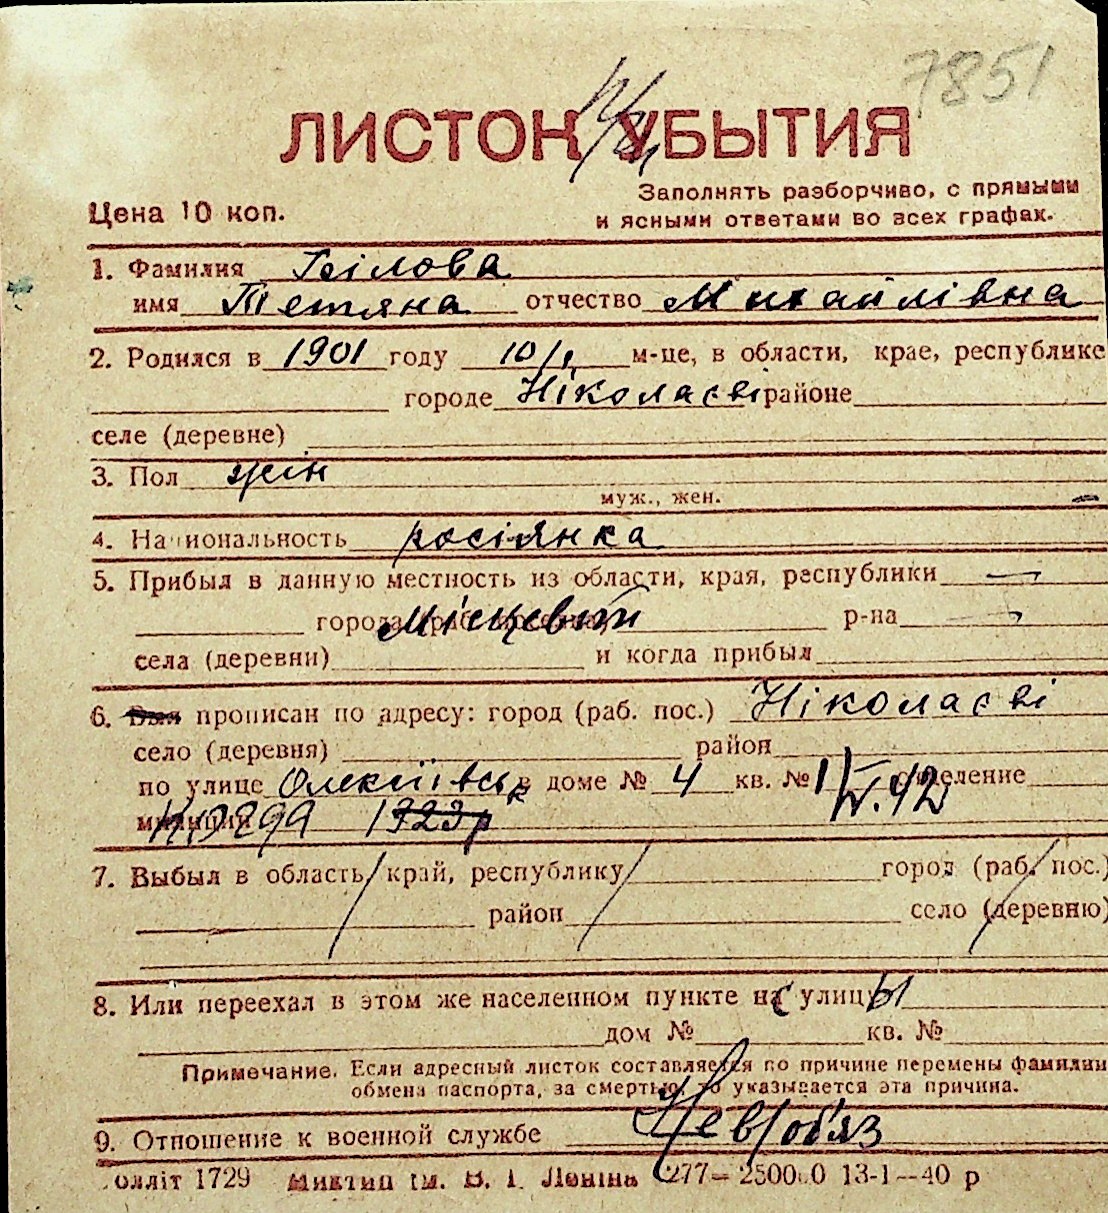 7851
ЛИСТОК УБЫТИЯ
Цена 10 коп.
Заполнять разборчиво, с прямыми
и ясными ответами во всех графах.
1. Фамилия
имя Тетяна отчество Михайлівна
2. Родился в 1901 году 10/I м-це, в области, крае, республике
городе Ніколаєві районе
селе (деревне)
3. Пол жін
муж., жен.
4. Национальность росіянка
5. Прибыл в данную местность из области, края, республики —
города (раб. поселка) Місцевий р-на
села (деревни) и когда прибыл
6. Был прописан по адресу: город (раб. пос.) Ніколаєві
село (деревня) район
по улице Олексіївськ в доме № 4 кв. № отделение
милиции
7. Выбыл в область, край, республику город (раб. пос.)
район село (деревню)
8. Или переехал в этом же населенном пункте на улицу
дом № кв. №
Примечание. Если адресный листок составляется по причине перемены фамилии
обмена паспорта, за смертью, то указывается эта причина.
9. Отношение к военной службе Нев/об'яз
олліт 1729 Миктип ім. В. І. Леніна 277— 25000 13-1—40 р